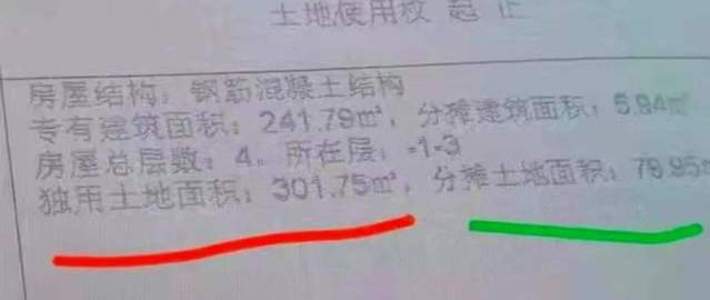 土地使用权 起 止
房屋结构：钢筋混凝土结构
专有建筑面积：241.79㎡，分摊建筑面积：5.94㎡
房屋总层数：4，所在层：-1-3
独用土地面积：301.75㎡，分摊土地面积：79.95㎡